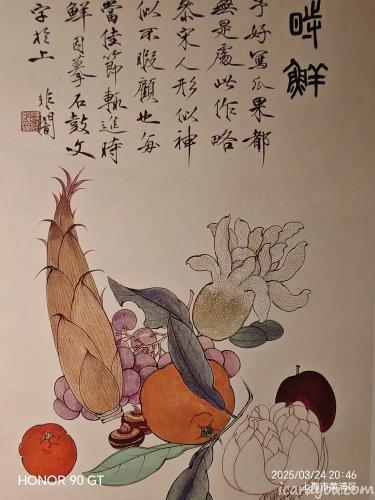 時鮮
予好寫瓜果都
無是處此作略
參宋人形似神
似不暇顧也每
當佳節輒進時
鮮因摹石鼓文
字於上
非闇
HONOR 90 GT
2025/03/24 20:46
上海市黄浦区